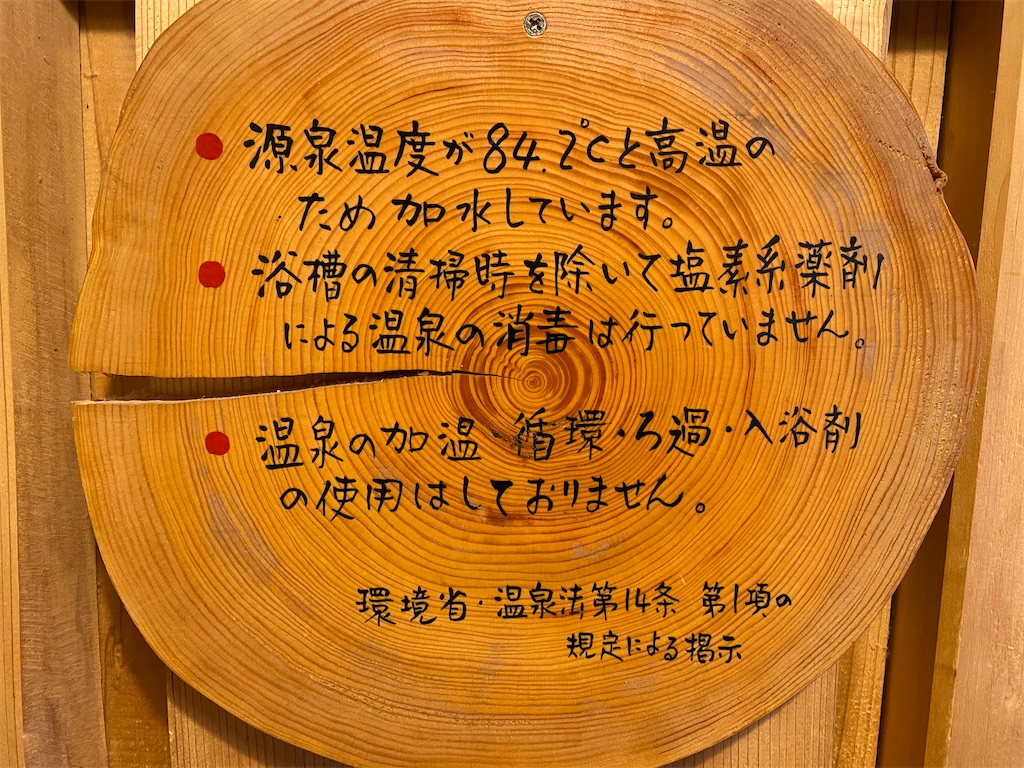 ● 源泉温度が84.2℃と高温の
ため加水しています。
● 浴槽の清掃時を除いて塩素系薬剤
による温泉の消毒は行っていません。
● 温泉の加温 循環・ろ過・入浴剤
の使用はしておりません。
環境省・温泉法第14条 第1項の
規定による掲示